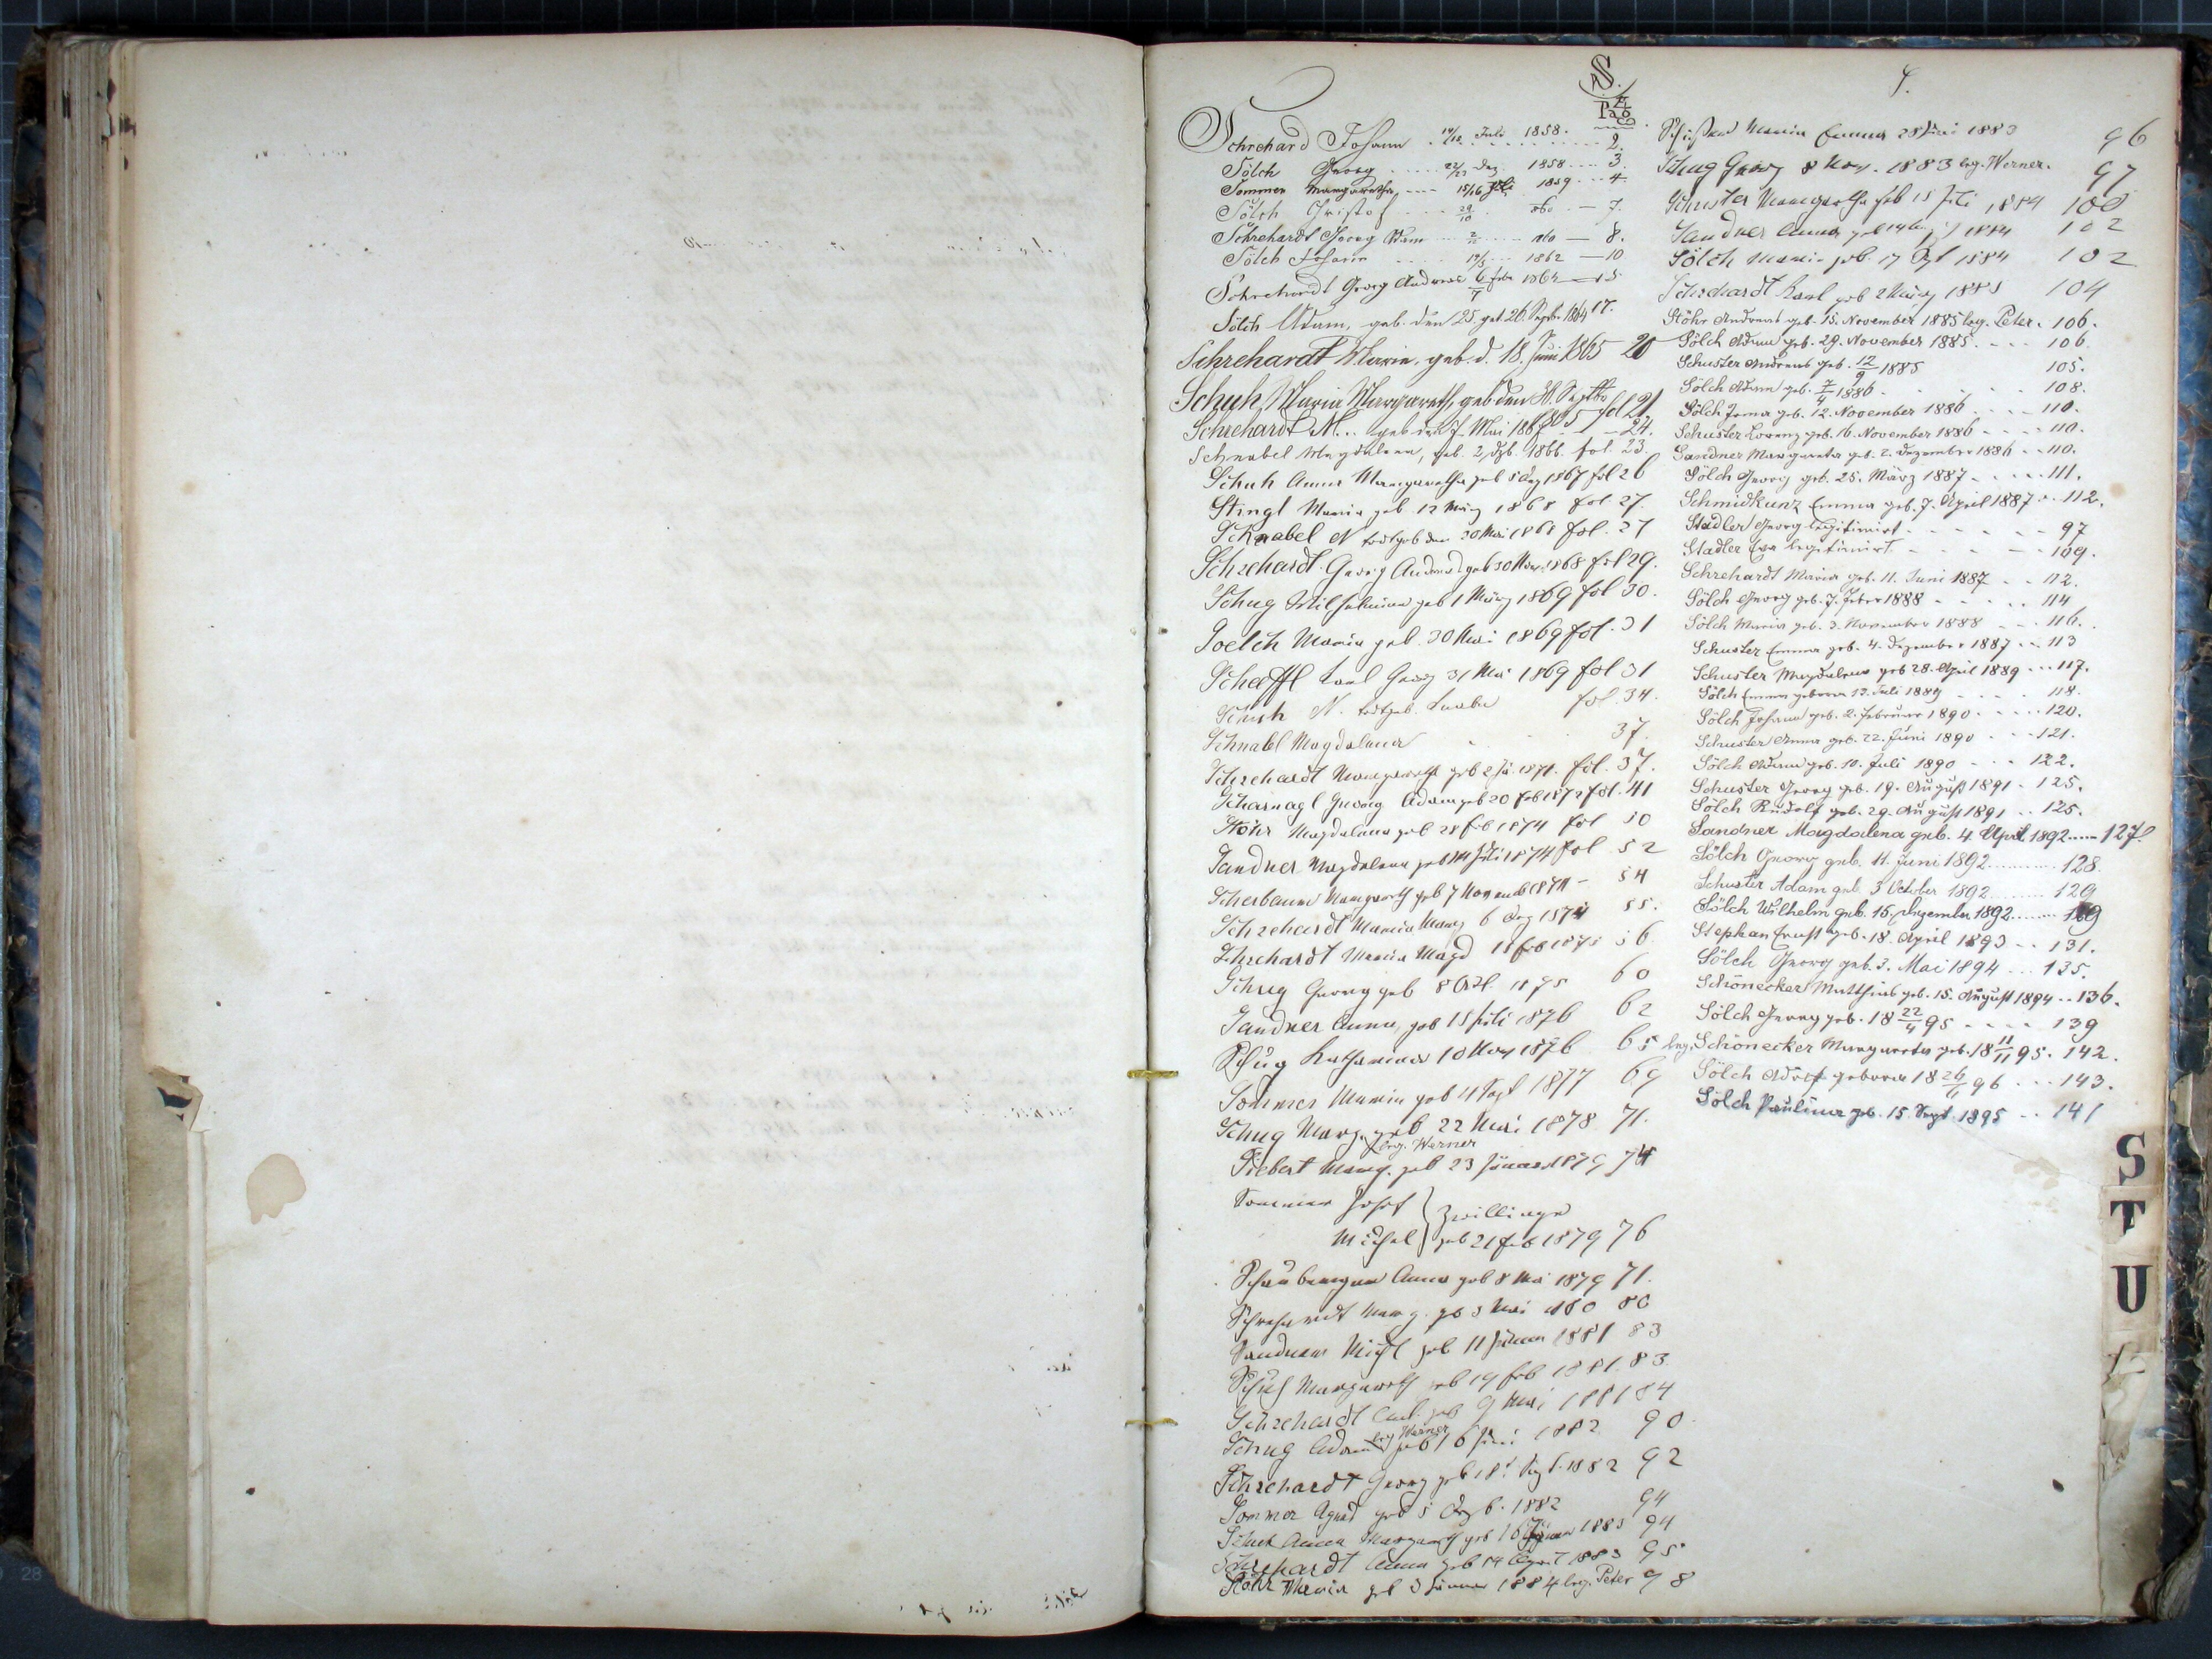 S.
Pag
Schrehard Johann 17/18 Juli 1858. 2.
Sölch Georg 22/23 Dez. 1858 3.
Sommer Margaretha, 15/16 Juli 1859 4
Sölch Christof 29/10 860 — 7.
Schrehardt Georg Adam 860 — 8.
Sölch Johann 1862 — 10
Schrehardt Georg Andreas 1862 — 15
Sölch Adam, geb. den 25. get. 26. Septb. 1864 17.
Schrehardt Maria, geb. d. 18. Juni 1865 20
Schuh, Maria Margareth, geb den 30. Septbr 65 fol 21
Schrehardt M... geb den 7. Mai 1867 — 24.
Schnabel Magdalena, geb. 2. Dzb. 1866. fol. 23.
Schuh Anna Margaretha geb 5 Dez 1867 fol 26
Stingl Maria geb 12 März 1868 fol 27.
Schnabel N todtgeb den 30 Mai 1868 fol. 27
Schrehardt Georg Andreas geb 30 Nov. 1868 fol 29.
Schug Wilhelmina geb 1 März 1869 fol 30.
Soelch Maria geb. 30 Mai 1869 fol. 31
Schaffl Karl Georg 31 Mai 1869 fol 31
Schuh N. todtgeb. Knabe fol. 34.
Schnabl Magdalena 37.
Schrehardt Margareth geb 2 Jä. 1871. fol. 37.
Scharnagl Georg Adam geb 20 Feb 1872 fol. 41
Stöhr Magdalena geb 28 Feb 1874 fol 50
Sandner Magdalena geb 14 Juli 1874 fol 52
Scherbaum Margareth geb 7 Novemb 1874 — 54
Schrehardt Maria Marg 6 Dez 1874 55.
Schrehardt Maria Magd 18 Feb 1875 56
Schug Georg geb 8 Okt. 1875 60
Sandner Anna, geb 15 Juli 1876 62
Schug Katharina 10 Nov 1876 65
Sommer Maria geb 4 Sept 1877 69
Schug Marg. geb 22 Mai 1878 71.
leg. Werner
Siebert Marg. geb 23 Januar 1879 74
Sommer Josef } Zwillinge
Michal } geb 21 Feb 1879 76
Schaubenger Anna geb 8 Mai 1879 71.
Schrehardt Marg. geb 3 Mai 1880 80
Sandner Michl geb 11 Januar 1881 83
Schuh Margareth geb 19 Feb 1881. 83.
Schrehardt Carl. geb 9 Mai 1881 84
Schug Adam leg Werner geb 16 Juni 1882 90
Schrehardt Georg geb 18. Sept. 1882 92
Sommer Agnes geb 5 Dzb. 1882 94
Schuh Anna Margareth geb 16 Januar 1883 94
Schrehardt Anna geb 14 April 1883 95
Stöhr Maria geb 3 Januar 1884 leg. Peter 98
S.
Maria Emma 28 Juni 1883 96
Schug Georg 8 Nov. 1883 leg. Werner. 97
Schuster Margaretha geb 15 Juli 1884 100
Sandner Anna geb 14 1884 102
Sölch Maria geb. 17 Sept 1884 102
Schrehardt Karl geb 2 März 1885 104
Stöhr Andreas geb. 15. November 1885 leg. Peter. 106.
Sölch Adam geb. 29. November 1885. 106
Schuster Andreas geb. 12/9 1885 105.
Sölch Adam geb. 7/4 1886 108.
Sölch Irma geb. 12. November 1886 110.
Schuster Lorenz geb. 16. November 1886 110.
Sandner Margareta geb. 2. Dezember 1886 110.
Sölch Georg geb. 25. März 1887 111.
Schmidkunz Emma geb. 7. April 1887 112.
Stadler Georg legitimirt 97
Stadler Eva legitimirt 109.
Schrehardt Maria geb. 11. Juni 1887 112.
Sölch Georg geb. 7. Feber 1888 114
Sölch Maria geb. 3. November 1888 116.
Schuster Emma geb. 4. Dezember 1887 113
Schuster Magdalena geb 28. April 1889 117.
Sölch Emma geboren 13. Juli 1889 118.
Sölch Johann geb. 2. Februar 1890 120.
Schuster Anna geb. 22. Juni 1890 121.
Sölch Adam geb. 10. Juli 1890 122.
Schuster Georg geb. 19. August 1891 125.
Sölch Rudolf geb. 29. August 1891 125.
Sandner Magdalena geb. 4. April 1892 127.
Sölch Georg geb. 11. Juni 1892 128
Schuster Adam geb 3 October 1892 129
Sölch Wilhelm geb. 15. Dezember 1892 129
Stephan Ernst geb. 18. April 1893 131.
Sölch Georg geb. 3. Mai 1894 135.
Schönecker Matthias geb. 15. August 1894 136.
Sölch Georg geb. 18 22/4 95 139
leg. Schönecker Margareta geb. 18 11/11 95. 142.
Sölch Adolf geboren 18 26/1 96 143.
Sölch Paulina geb. 15. Sept. 1895 141
S
T
U